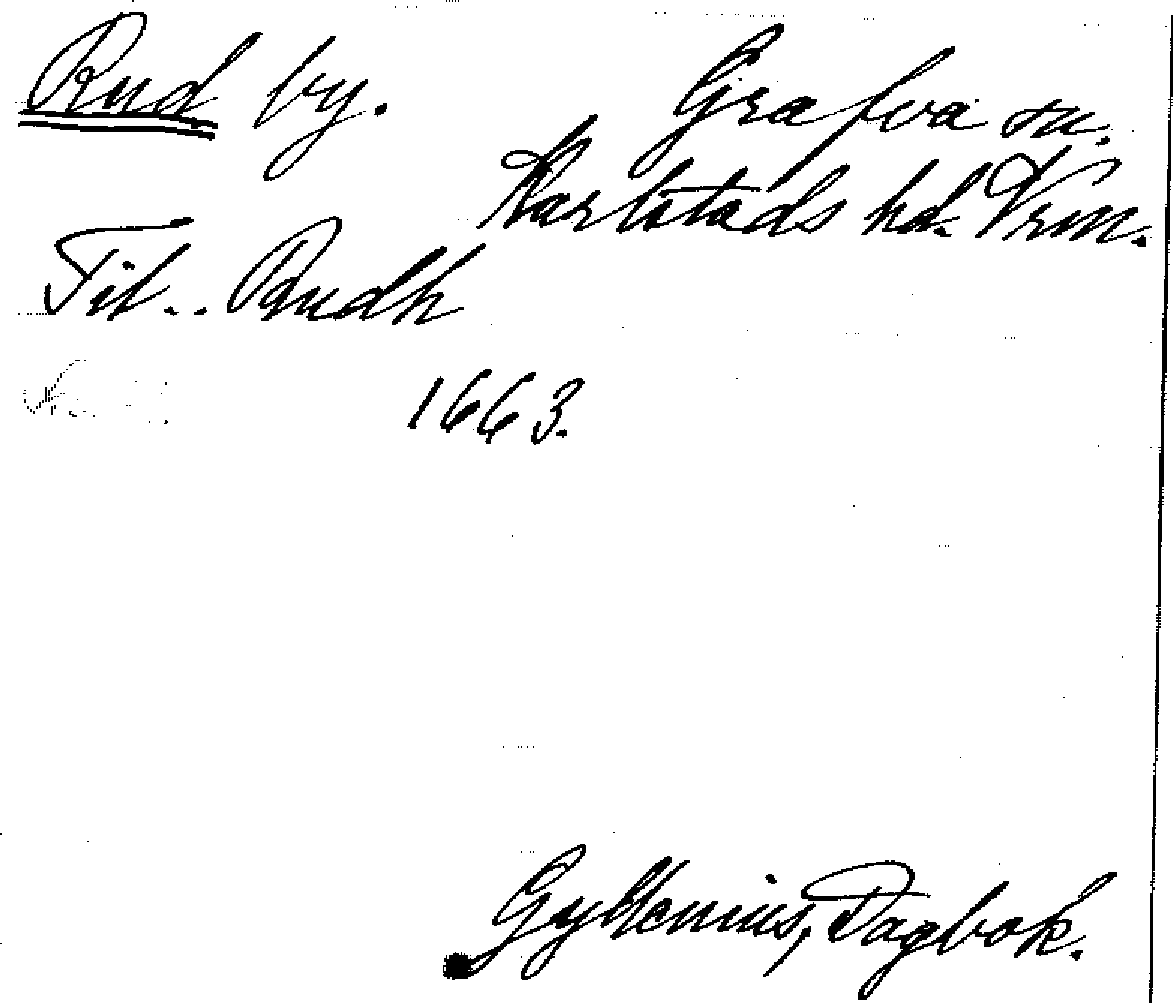 Rud by. Grafva sn.
Karlstads hd. Vrm.
Til.. Rudh
1663.
Gyllenius, Dagbok.